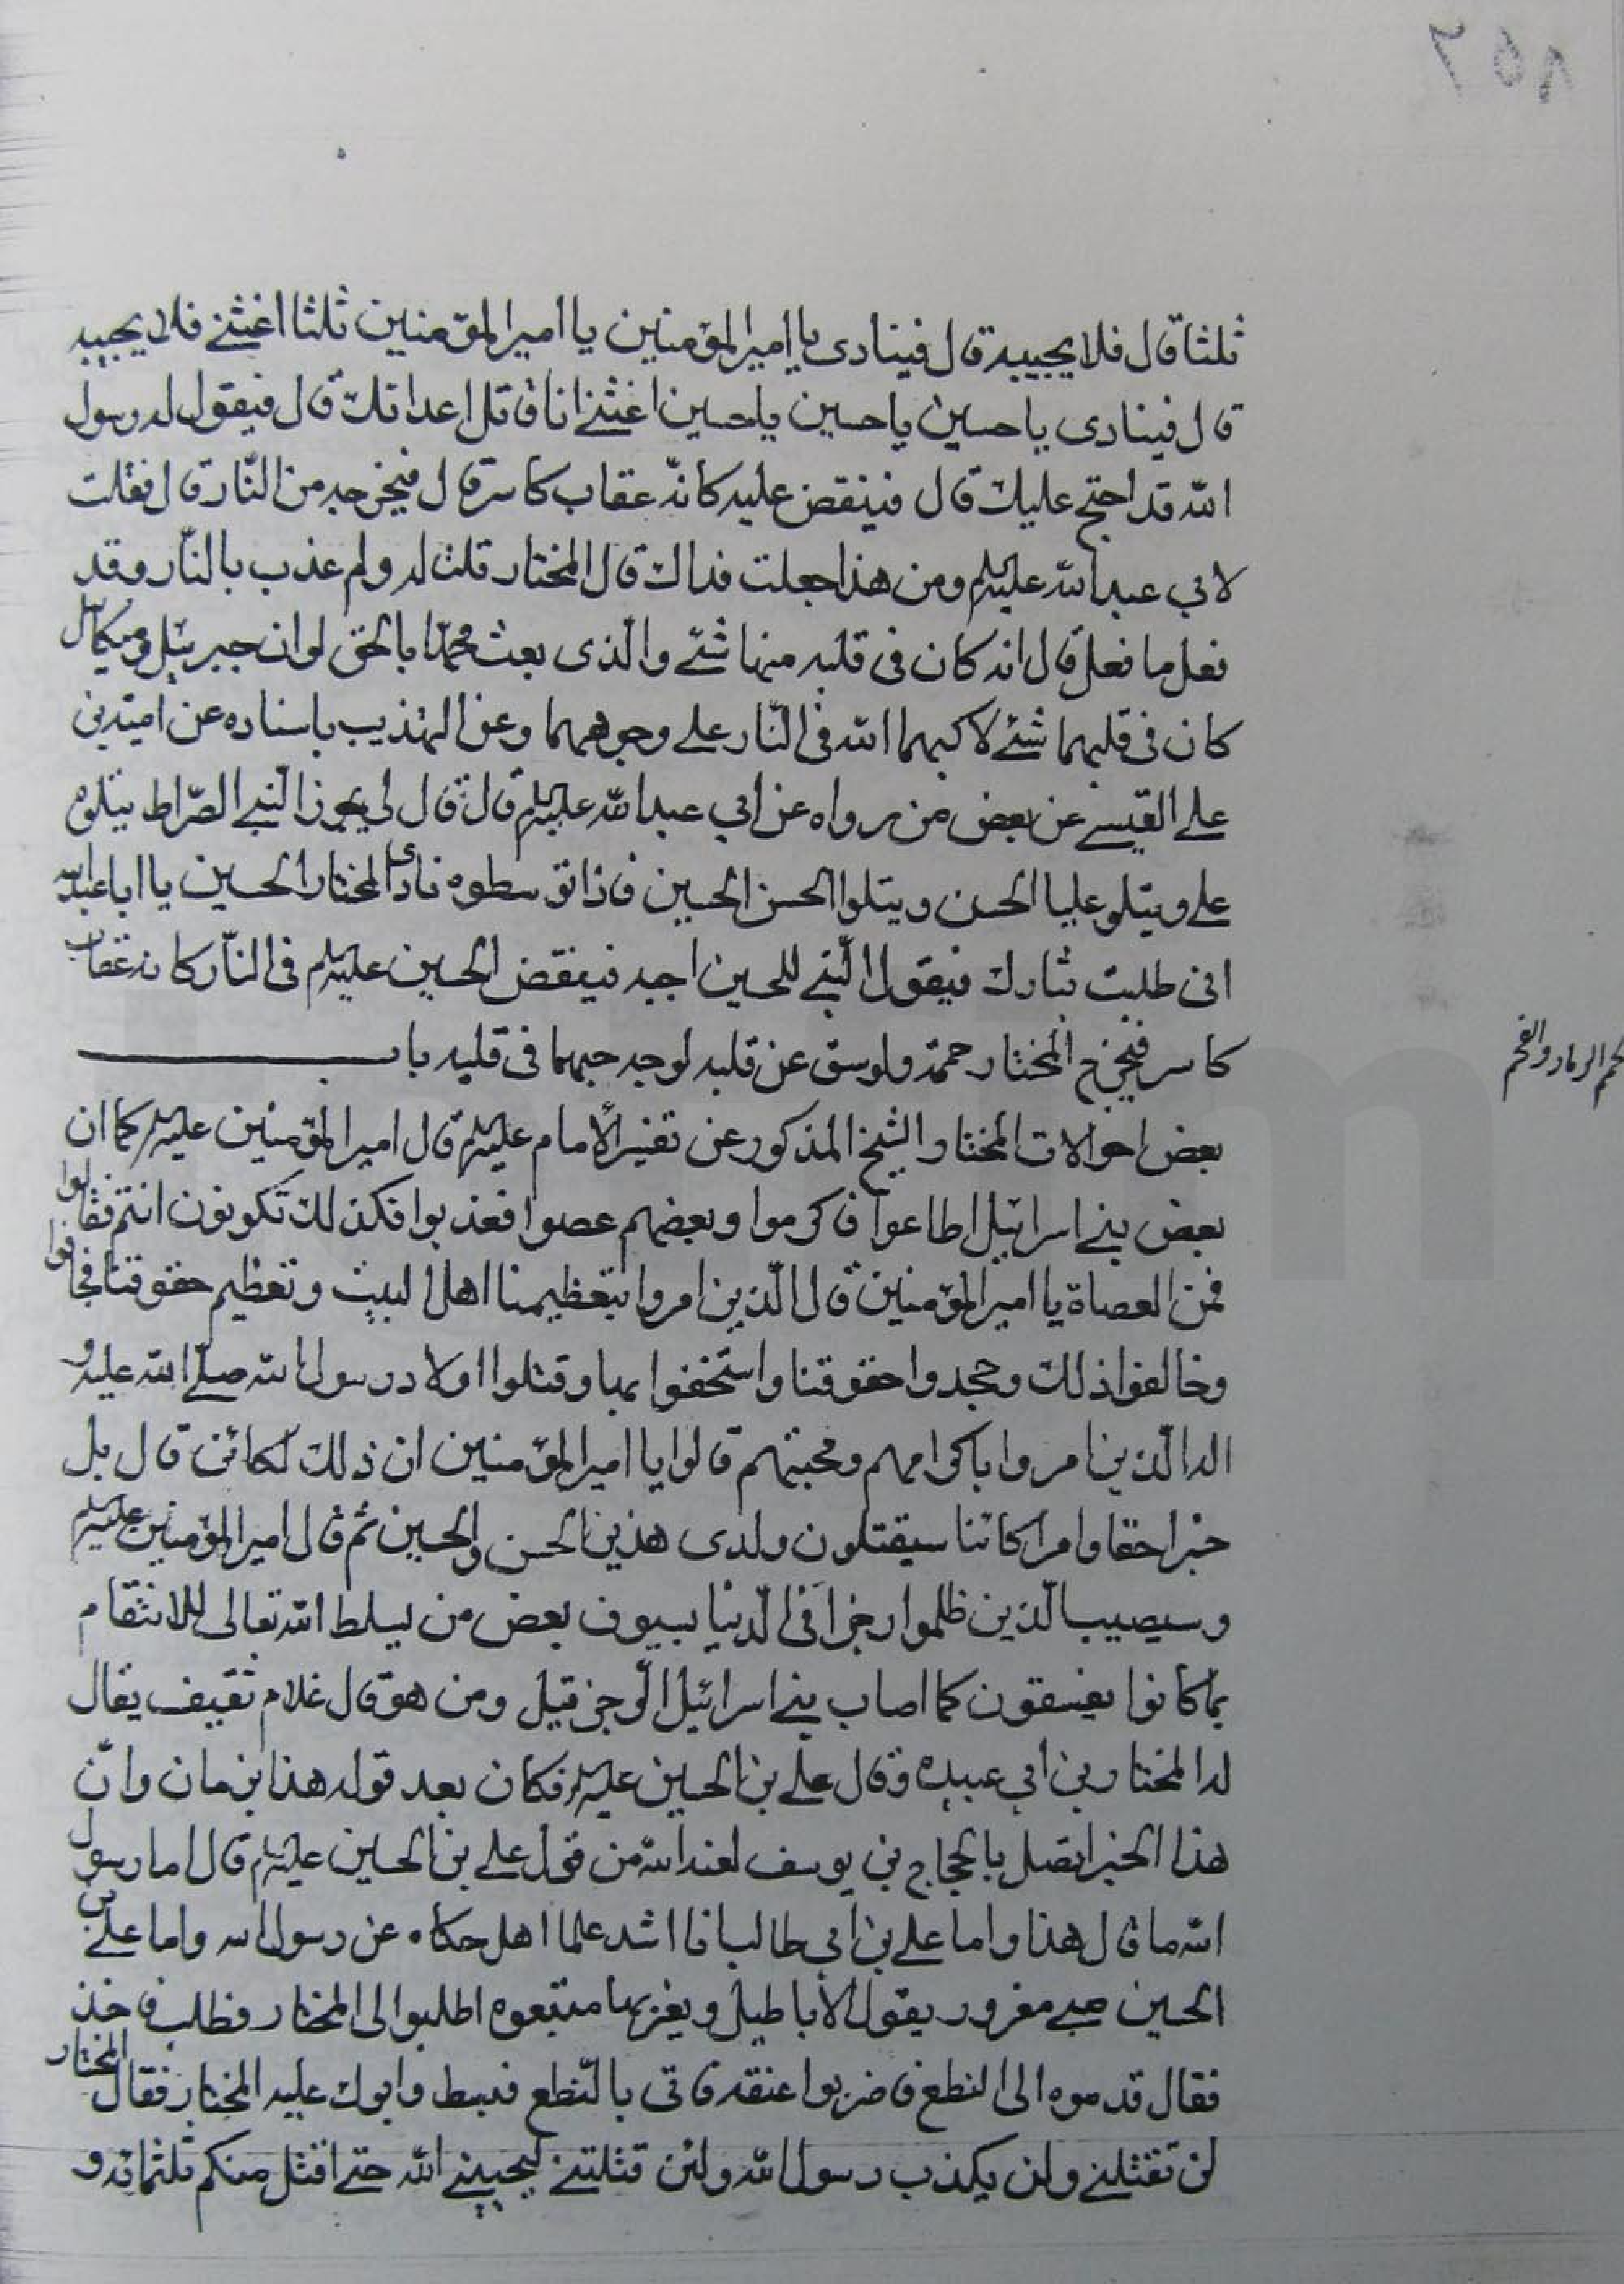 ٢٥٨
ثلثا قال فلا يجيبه قال فينادى يا امير المؤمنين يا امير المؤمنين ثلثا اغثنى فلا يجيبه
قال فينادى يا حسين يا حسين يا حسين اغثنى انا قاتل اعدائك قال فيقول له رسول
الله قد احتج عليك قال فينقض عليه كانه عقاب كاسر قال فيخرجه من النار قال فقلت
لابي عبد الله عليه السلم ومن هذا جعلت فداك قال المختار قلت له ولم عذب بالنار وقد
فعل ما فعل قال انه كان فى قلبه منها شئ والذى بعث محمدا بالحق لو ان جبرئيل وميكائيل
كان فى قلبهما شئ لاكبهما الله فى النار على وجوههما وعن التهذيب باسناده عن امية بن
على القيسى عن بعض من رواه عن ابي عبد الله عليه السلم قال قال لى يجوز النبى الصراط يتلوه
على ويتلو عليا الحسن ويتلوا الحسن الحسين فاذا توسطوه نادى المختار الحسين يا ابا عبد الله
انى طلبت بثارك فيقول النبى للحسين اجبه فينقض الحسين عليه السلم فى النار كانه عقاب
كاسر فيخرج المختار حممة ولو شق عن قلبه لوجد حبهما فى قلبه باب
حمم الرماد والفحم
بعض احوالات المختار والشيخ المذكور عن تفسير الأمام عليه السلم قال امير المؤمنين عليه السلم كما ان
بعض بنى اسرائيل اطاعوا فاكرموا وبعضهم عصوا فعذبوا فكذلك تكونون انتم فقالوا
فمن العصاة يا امير المؤمنين قال الذين امروا بتعظيمنا اهل البيت وتعظيم حقوقنا فخانوا
وخالفوا ذلك وجحدوا حقوقنا واستخفوا بها وقتلوا اولاد رسول الله صلى الله عليه و
اله الذين امروا باكرامهم ومحبتهم قالوا يا امير المؤمنين ان ذلك لكائن قال بل
خبرا حقا وامرا كائنا سيقتلون ولدى هذين الحسن والحسين ثم قال امير المؤمنين عليه السلم
وسيصيب الذين ظلموا رجزا فى الدنيا بسيوف بعض من يسلط الله تعالى للانتقام
بما كانوا يفسقون كما اصاب بنى اسرائيل الرجز قيل ومن هو قال غلام ثقيف يقال
له المختار بن أبي عبيده وقال على بن الحسين عليه السلم فكان بعد قوله هذا بزمان وان
هذا الخبر اتصل بالحجاج بن يوسف لعنه الله من قول على بن الحسين عليه السلم قال اما رسول
الله ما قال هذا واما على بن ابي طالب فانا اشد علما اهل حكاه عن رسول الله واما على بن
الحسين صبى مغرور يقول الأباطيل ويغر بها متبعوه اطلبوا الى المختار فطلب فاخذ
فقال قدموه الى النطع فاضربوا عنقه فاتى بالنطع فبسط وابرك عليه المختار فقال المختار
لن تقتلنى ولن يكذب رسول الله ولئن قتلتنى ليحيينى الله حتى اقتل منكم ثلثمائة و